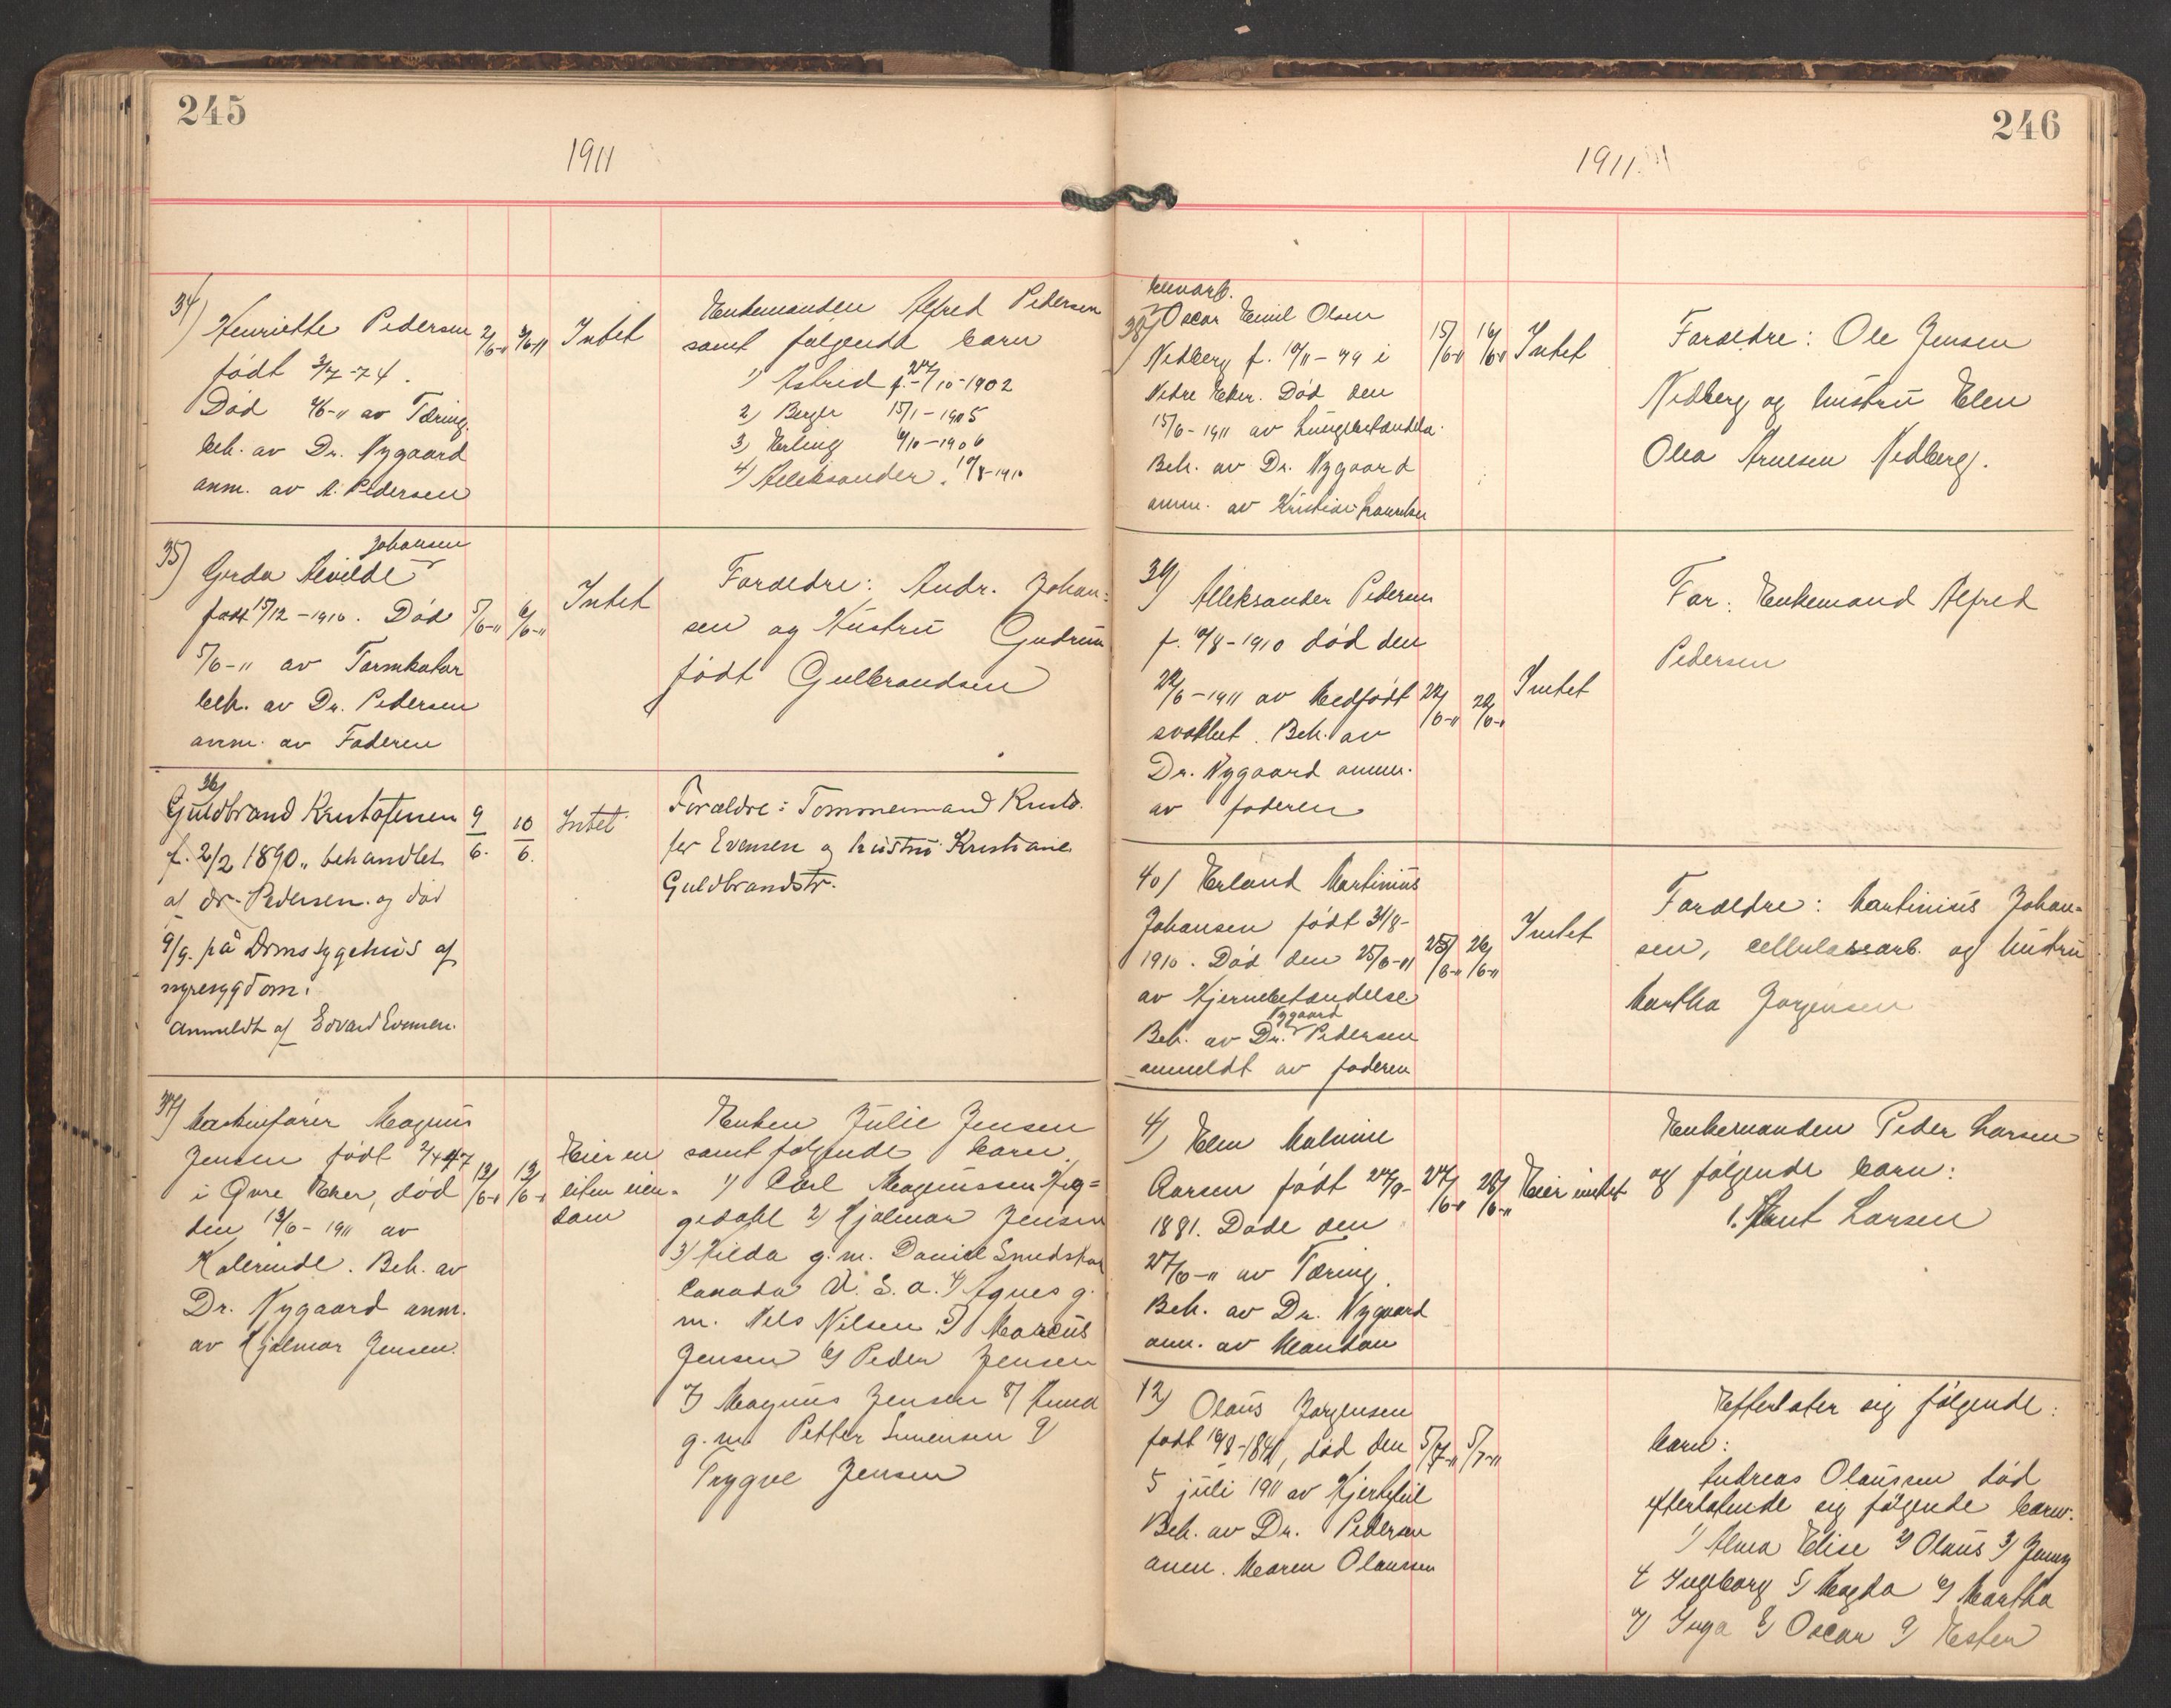 245
1911
34)
Henriette Pedersen 2/6-11 3/6-11 Intet
født 3/7-74.
Død 2/6-11 av Tæring.
beh. av Dr. Nygaard
anm. av A. Pedersen
Enkemanden Alfred Pedersen
samt følgende barn
1) Astrid f. 27/10-1902
2) Berger 15/1-1905
3) Erling 6/10-1906
4) Alleksander. 10/8-1910
35) Johansen
Gerda Alvilde
født 15/12-1910. Død 5/6-11 6/6-11 Intet
5/6-11 av Tarmkatar
beh. av Dr. Pedersen
anm. av Faderen
Forældre: Andr. Johan-
sen og Hustru Gudrun
født Gulbrandsen
36)
Guldbrand Kristofersen 9/6. 10/6. Intet
f. 2/2 1890. behandlet
af dr. Pedersen. og død
9/6. på Drms sygehus af
nyresygdom.
Anmeldt af Edvard Evensen.
Forældre: Tømmermand Kristo-
fer Evensen og hustru Kristiane
Guldbrandstr.
37) Maskinfører Magnus
Jensen født 2/4 47 12/6-11 13/6-11 Eier en
i Øvre Eker, død liten eien-
den 12/6-1911 av dom
Kolerinde. Beh. av
Dr. Nygaard anm.
av Hjalmar Jensen.
Enken Julie Jensen
samt følgende barn.
1) Carl Magnussen Sig-
gedahl 2) Hjalmar Jensen
3) Hilda g. m. Daniel
Canada U. S. a. 4) Agnes g.
m. Nels Nilsen 5) Marcus
Jensen 6) Peder Jensen
7) Magnus Jensen 8) Anna
g. m. Petter Simensen 9)
Trygve Jensen
246
1911.
38) Oscar Emil Olsen
Nedberg f. 10/11-79 i 15/6-11 16/6-11 Intet
Nedre Eker. Død den
15/6-1911 av Lungebetændelse.
Beh. av Dr. Nygaard
anm. av Kristian
Forældre: Ole Jensen
Nedberg og hustru Elen
Olea Arnesen Nedberg.
39) Alleksander Pedersen
f. 10/8-1910 død den
22/6-1911 av Medfødt 22/6-11 22/6-11 Intet
svakhet. Beh. av
Dr. Nygaard anm.
av faderen
Far: Enkemand Alfred
Pedersen
40) Erland Martinius
Johansen født 31/8-
1910. Død den 25/6-11 25/6-11 26/6-11 Intet
av Hjernebetændelse.
Nygaard
Beh. av Dr. Pedersen
anmeldt av faderen
Forældre: Martinius Johan-
sen, cellulosearb. og hustru
Martha Jørgensen
41) Elen Malvine
Larsen født 24/9- 27/6-11 28/6-11 Eier intet
1881. Døde den
27/6-11 av Tæring.
Beh. av Dr. Nygaard
anm. av Mandan
Enkemanden Peder Larsen
og følgende barn:
1. Knut Larsen
42) Olaus Jørgensen
født 10/8-1841, død den 5/7-11 5/7-11
5 juli 1911 av Hjertefeil
Beh. av Dr. Pedersen
anm. Maren Olaussen
Efterlater sig følgende:
barn:
Andreas Olaussen død
efterlatende sig følgende barn:
1) Alma Elise 2) Olaus 3) Jenny
4 Ingeborg 5) Magda 6) Martha
7) Inga 8) Oscar 9) Ester